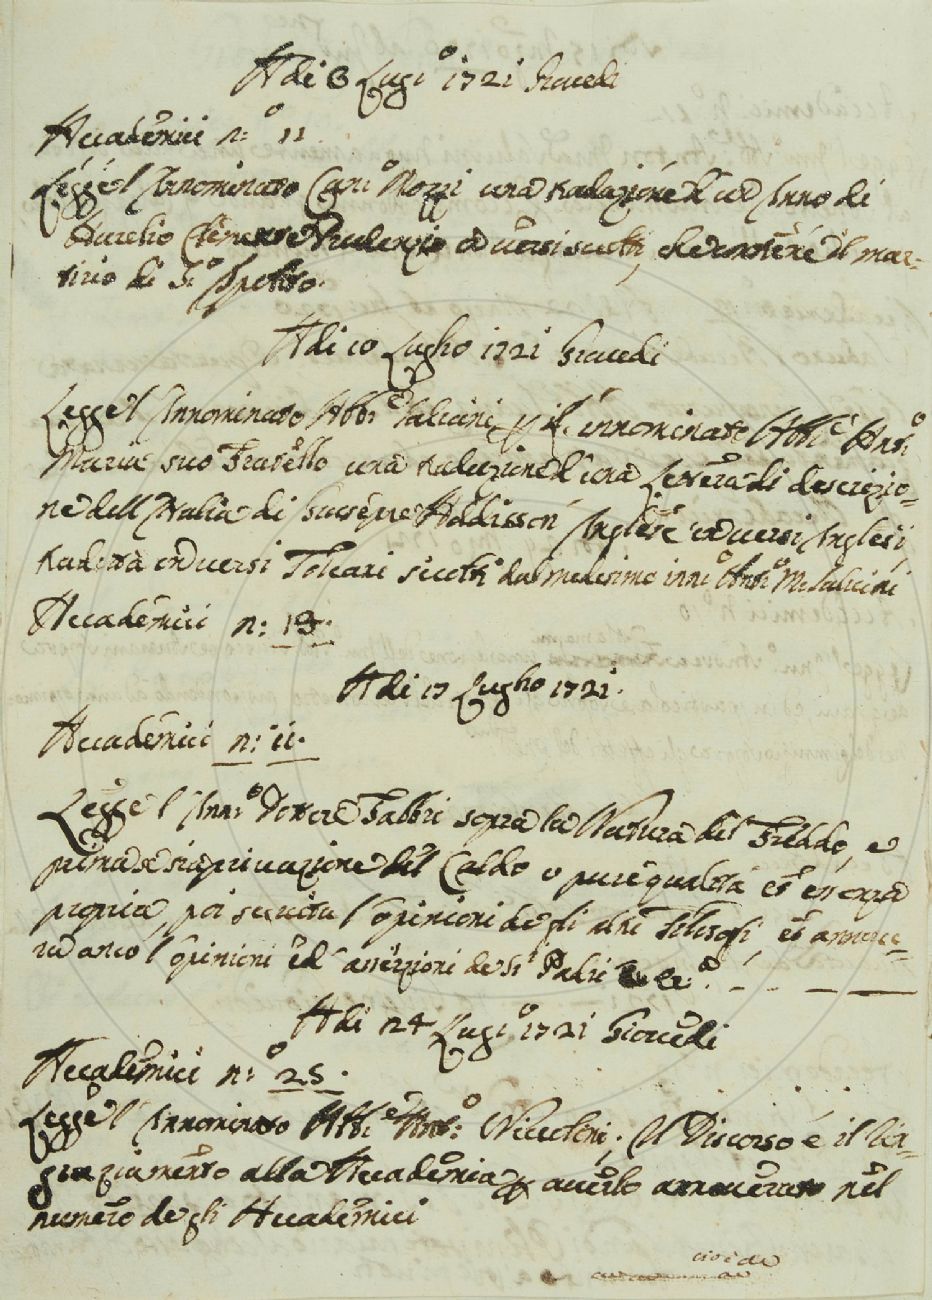 A di 3 Lugl.o 1721 Giovedi
Accademici n:o 11
Legge l'Innominato Can.o Rozzi una traduzione d'un Inno di
Aurelio Clemente Prudenzio in versi sciolti, che contiene il mar-
tirio di S.o Ipolito.
A di 10 Luglio 1721 Giovedi
Legge l'Innominato Abb.e Salvini p il innominato Abb.e Ant.o
Maria suo Fratello una traduzione d'una Lettera di descrizio-
ne dell'Italia di Addisson Inglese in versi Inglesi
tradotta in versi Toscani sciolti dal medesimo inn.o Ant.o M. Salvini
Accademici n: 13.
A di 17 Luglio 1721.
Accademici n: 11.
Legge l'Inn.o Dottore Fabbri sopra la Natura del Freddo, e
prima se sia privazione del Caldo o pure qualità et essenza
propria, poi seguita l'opinioni degli altri Filosofi, et
anco l'opinioni ed asserzioni de S.i Padri
A di 24 Lugl.o 1721 Giovedi
Accademici n:o 25.
Legge l'Innominato Abb.e Ant.o Niccolini; Il Discorso è il rin-
graziamento alla Accademia p averlo annoverato nel
numero degli Accademici